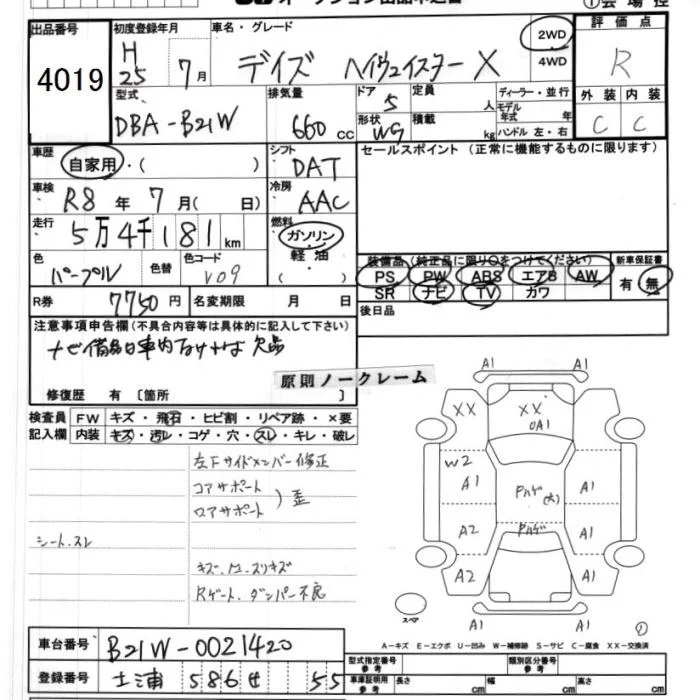 出品番号
4019
初度登録年月
H
25 7月
車名・グレード
デイズ ハイウェイスター X
2WD
4WD
評価点
R
型式
DBA-B21W
排気量
660 cc
ドア
5
形状
WG
定員
人
積載
kg
ディーラー・並行
モデル
年式 年
ハンドル 左・右
外装 内装
C C
車歴
自家用・( )
シフト
DAT
セールスポイント (正常に機能するものに限ります)
車検
R8 年 7 月( 日)
冷房
AAC
走行
5万4千181 km
燃料
ガソリン
軽油
( )
色
パープル
色替
色コード
V09
装備品(純正品に限り○をつけてください)
PS PW ABS エアB AW
SR ナビ TV カワ
新車保証書
有 無
R券 7750 円
名変期限 月 日
後日品
注意事項申告欄(不具合内容等は具体的に記入して下さい)
ナビ備品日車内なければ欠品
修復歴 有 〔箇所 〕
原則ノークレーム
検査員
記入欄
FW キズ・飛石・ヒビ割・リペア跡・×要
内装 キズ・汚レ・コゲ・穴・スレ・キレ・破レ
左フサイドメンバー修正
コアサポート
ロアサポート
) 歪
シート、スレ
Rゲート、ダンパー不良
A1 A1
XX XX XX
A1
W2
A1 A1
A2 A1
A2 A1
A1 A1
スペア
A-キズ E-エクボ U-凹み W-補修跡 S-サビ C-腐食 XX-交換済
車台番号 B21W-0021420
登録番号 土浦 586 せ 55
型式指定番号
参考
類別区分番号
参考
車庫証明用
参考
長さ cm 幅 cm 高さ cm